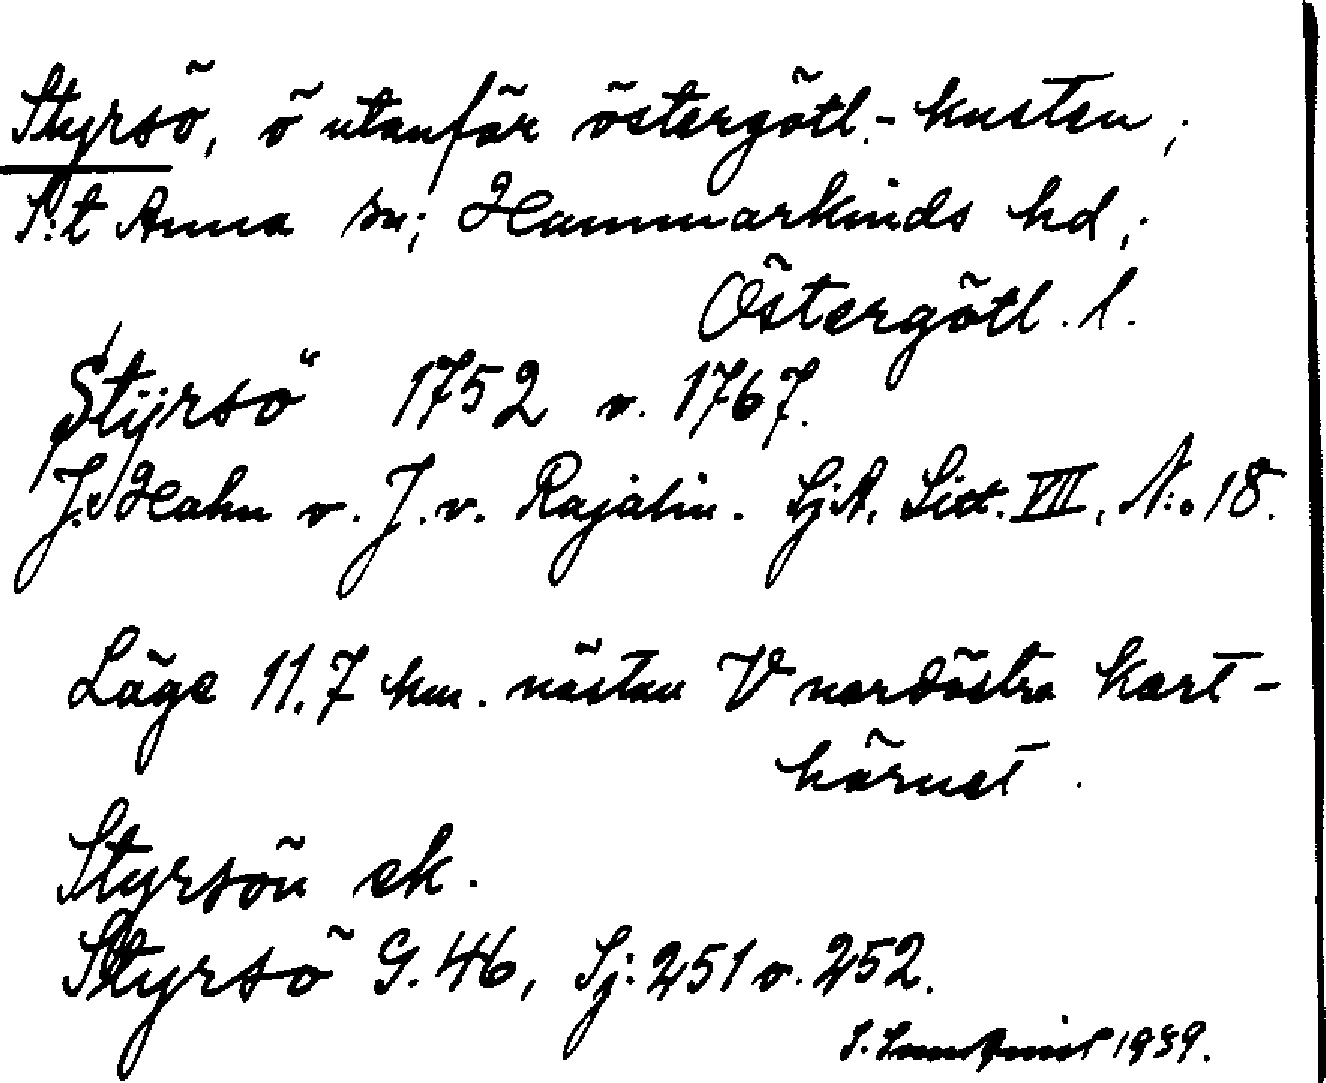 Styrsö, ö utanför östergötl.-kusten;
S:t Anna sn; Hammarkinds hd;
Östergötl. l.
Stÿrsö 1752 o. 1767.
J. Hahn o. J. v. Rajalin. Sj.A. Litt. VII, N:o 18.
Läge 11.7 km. nästan V nordöstra kart-
hörnet.
Styrsön ek.
Styrsö G. 46, Sj: 251 o. 252.
1939.